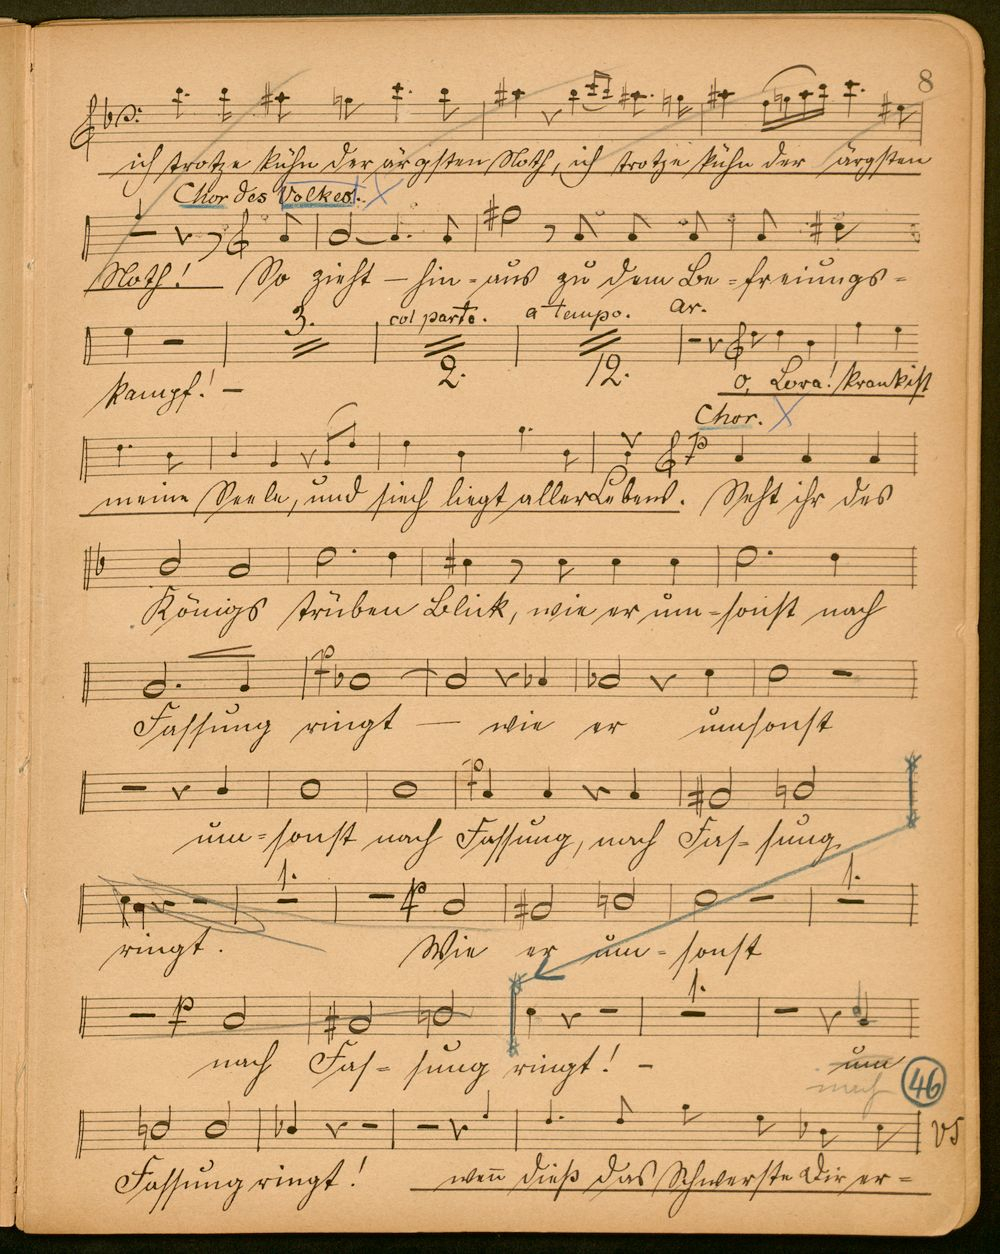 8
ich trotze kühn der ärgsten Noth, ich trotze kühn der ärgsten
Chor des Volkes.
Noth! So zieht – hin-aus zu dem Be-freiungs-
3. col parte. a tempo. Ar.
2. 12.
Kampf! – o, Lora! krank ist
Chor.
meine Seele, und siech liegt aller Lebens. Seht ihr des
Königs trüben Blick, wie er um-sonst nach
Fassung ringt — wie er umsonst
um-sonst nach Fassung, nach Fas-sung
1. 1.
ringt. Wie er um-sonst
1.
nach Fas-sung ringt! – um
nach 46
VS
Fassung ringt! wenn dieß das Schwerste Dir er-